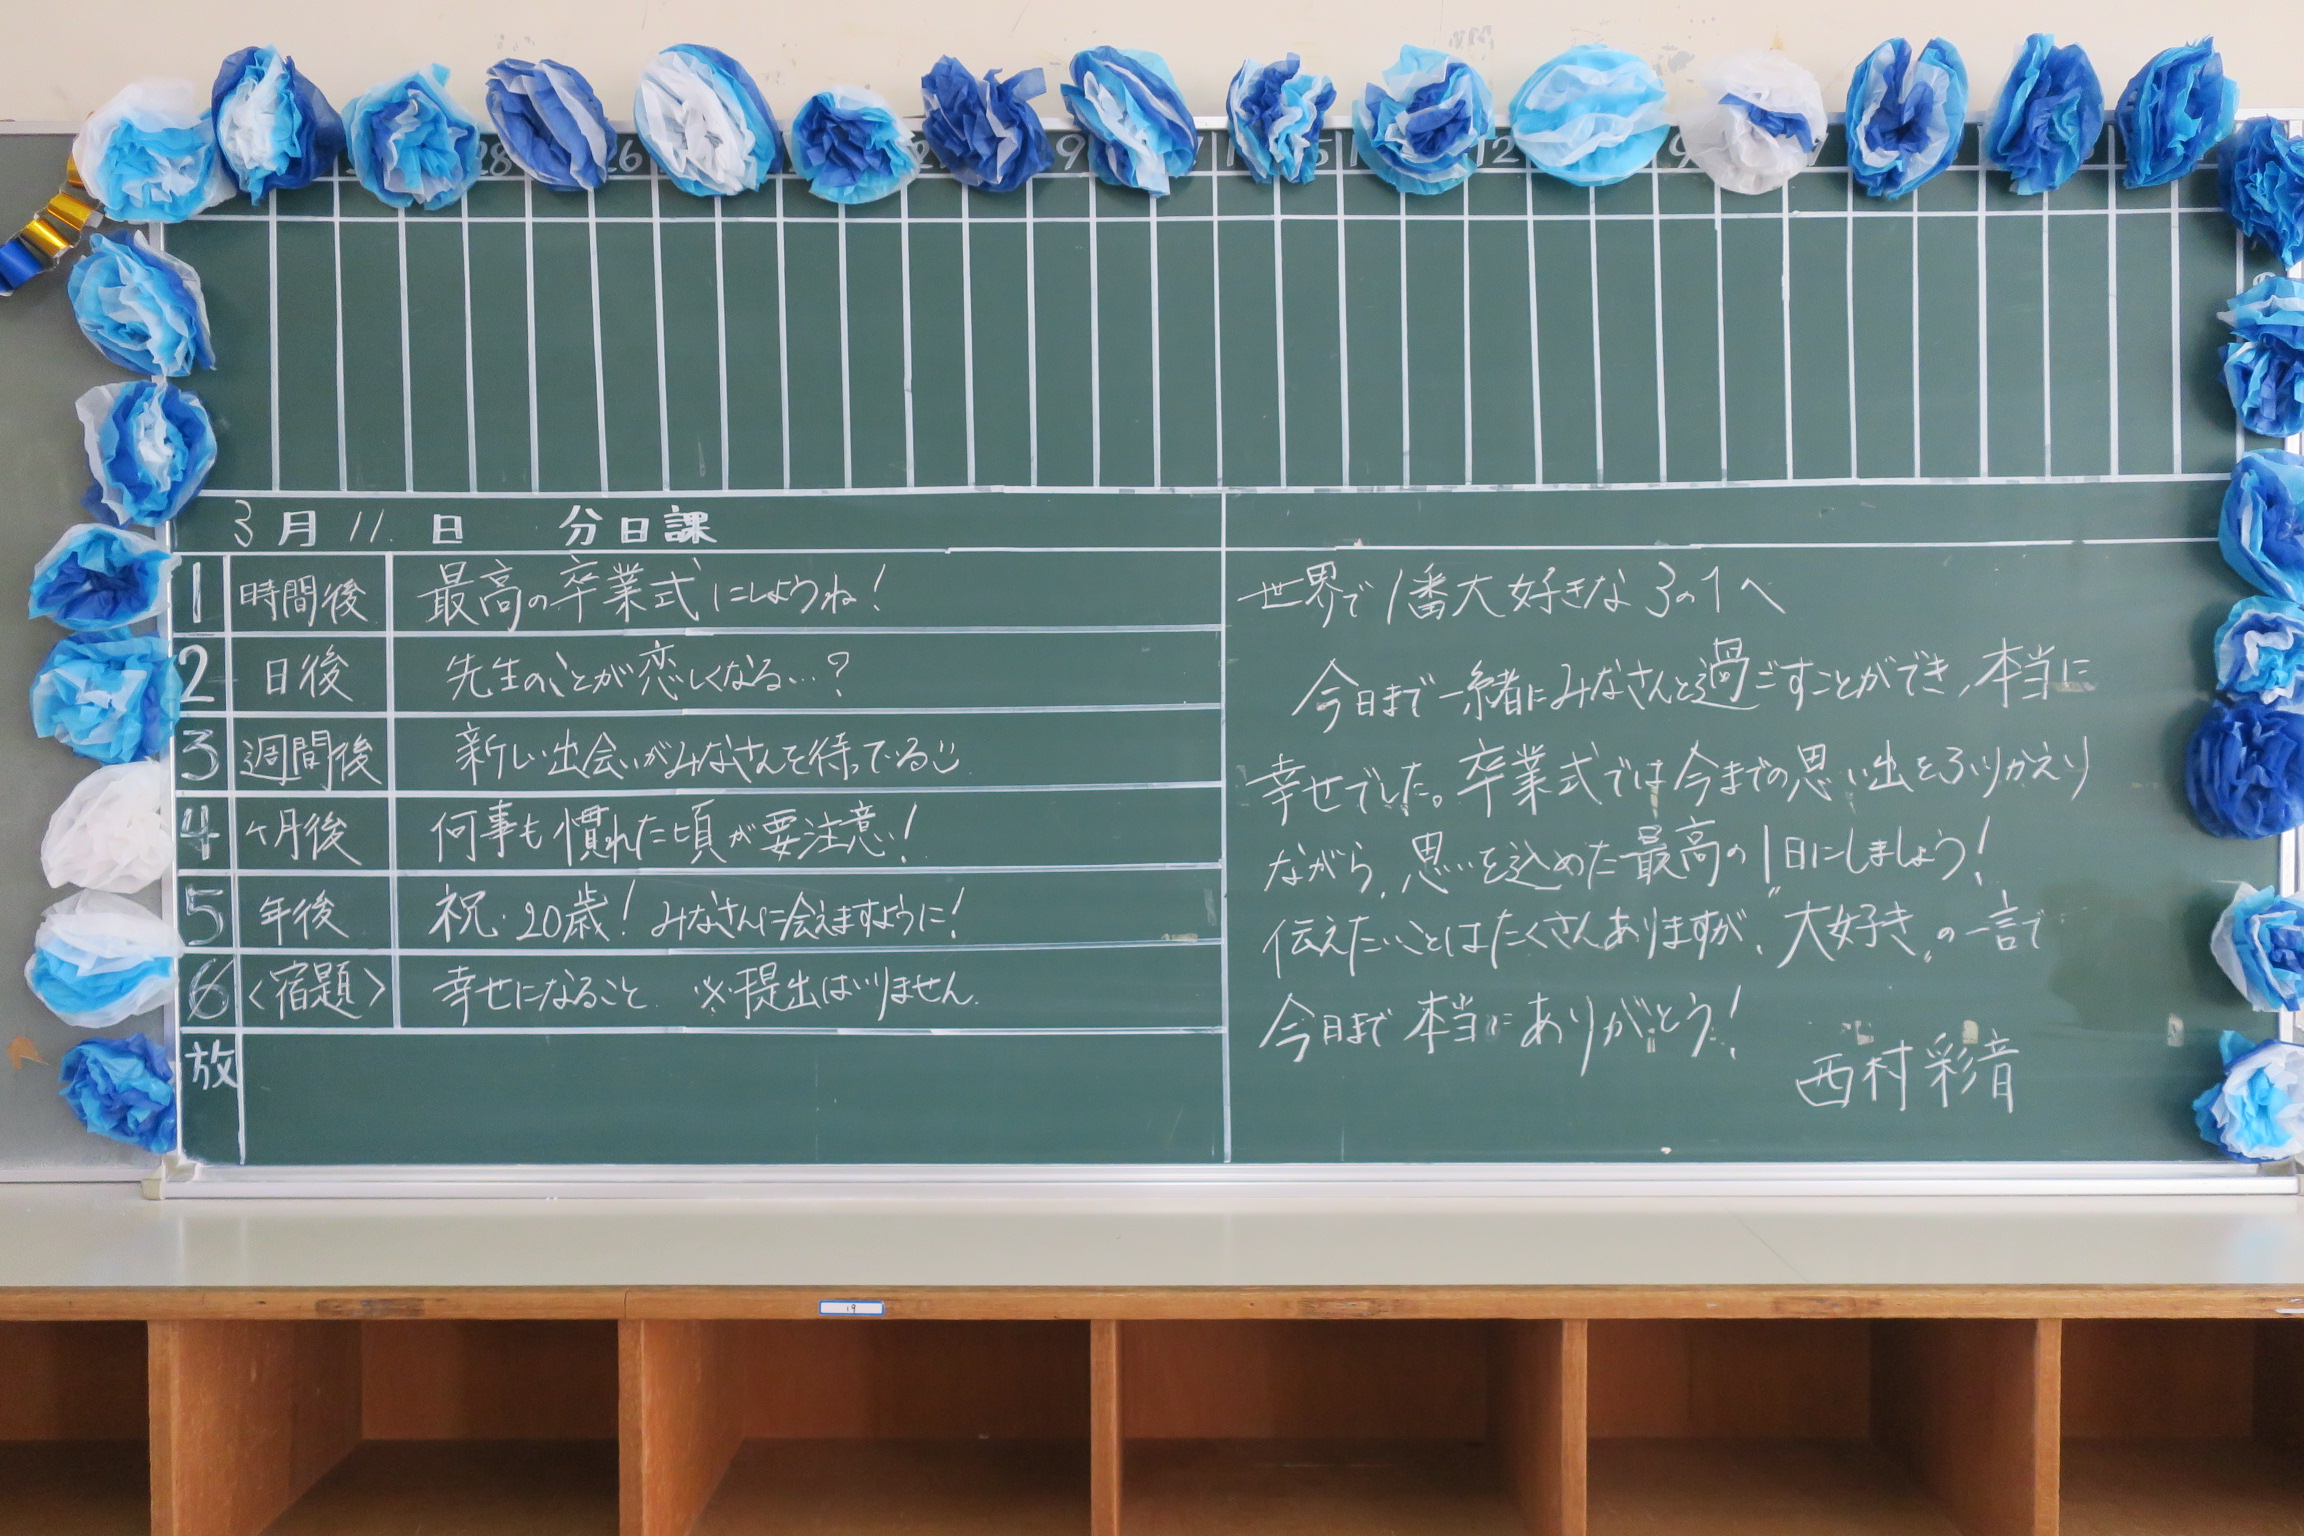 28 26 9 15 12 9
3月11日 分日課
1 時間後 最高の卒業式にしようね!
2 日後 先生のことが恋しくなる…?
3 週間後 新しい出会いがみなさんを待っている
4 ヶ月後 何事も慣れた頃が要注意!
5 年後 祝・20歳! みなさんに会えますように!
6 <宿題> 幸せになること ※提出はいりません.
放
世界で1番大好きな3の1へ
今日まで一緒にみなさんと過ごすことができ、本当に
幸せでした。卒業式では今までの思い出をふりかえり
ながら、思いを込めた最高の1日にしましょう!
伝えたいことはたくさんありますが、"大好き"の一言で
今日まで本当にありがとう!
西村彩音
19